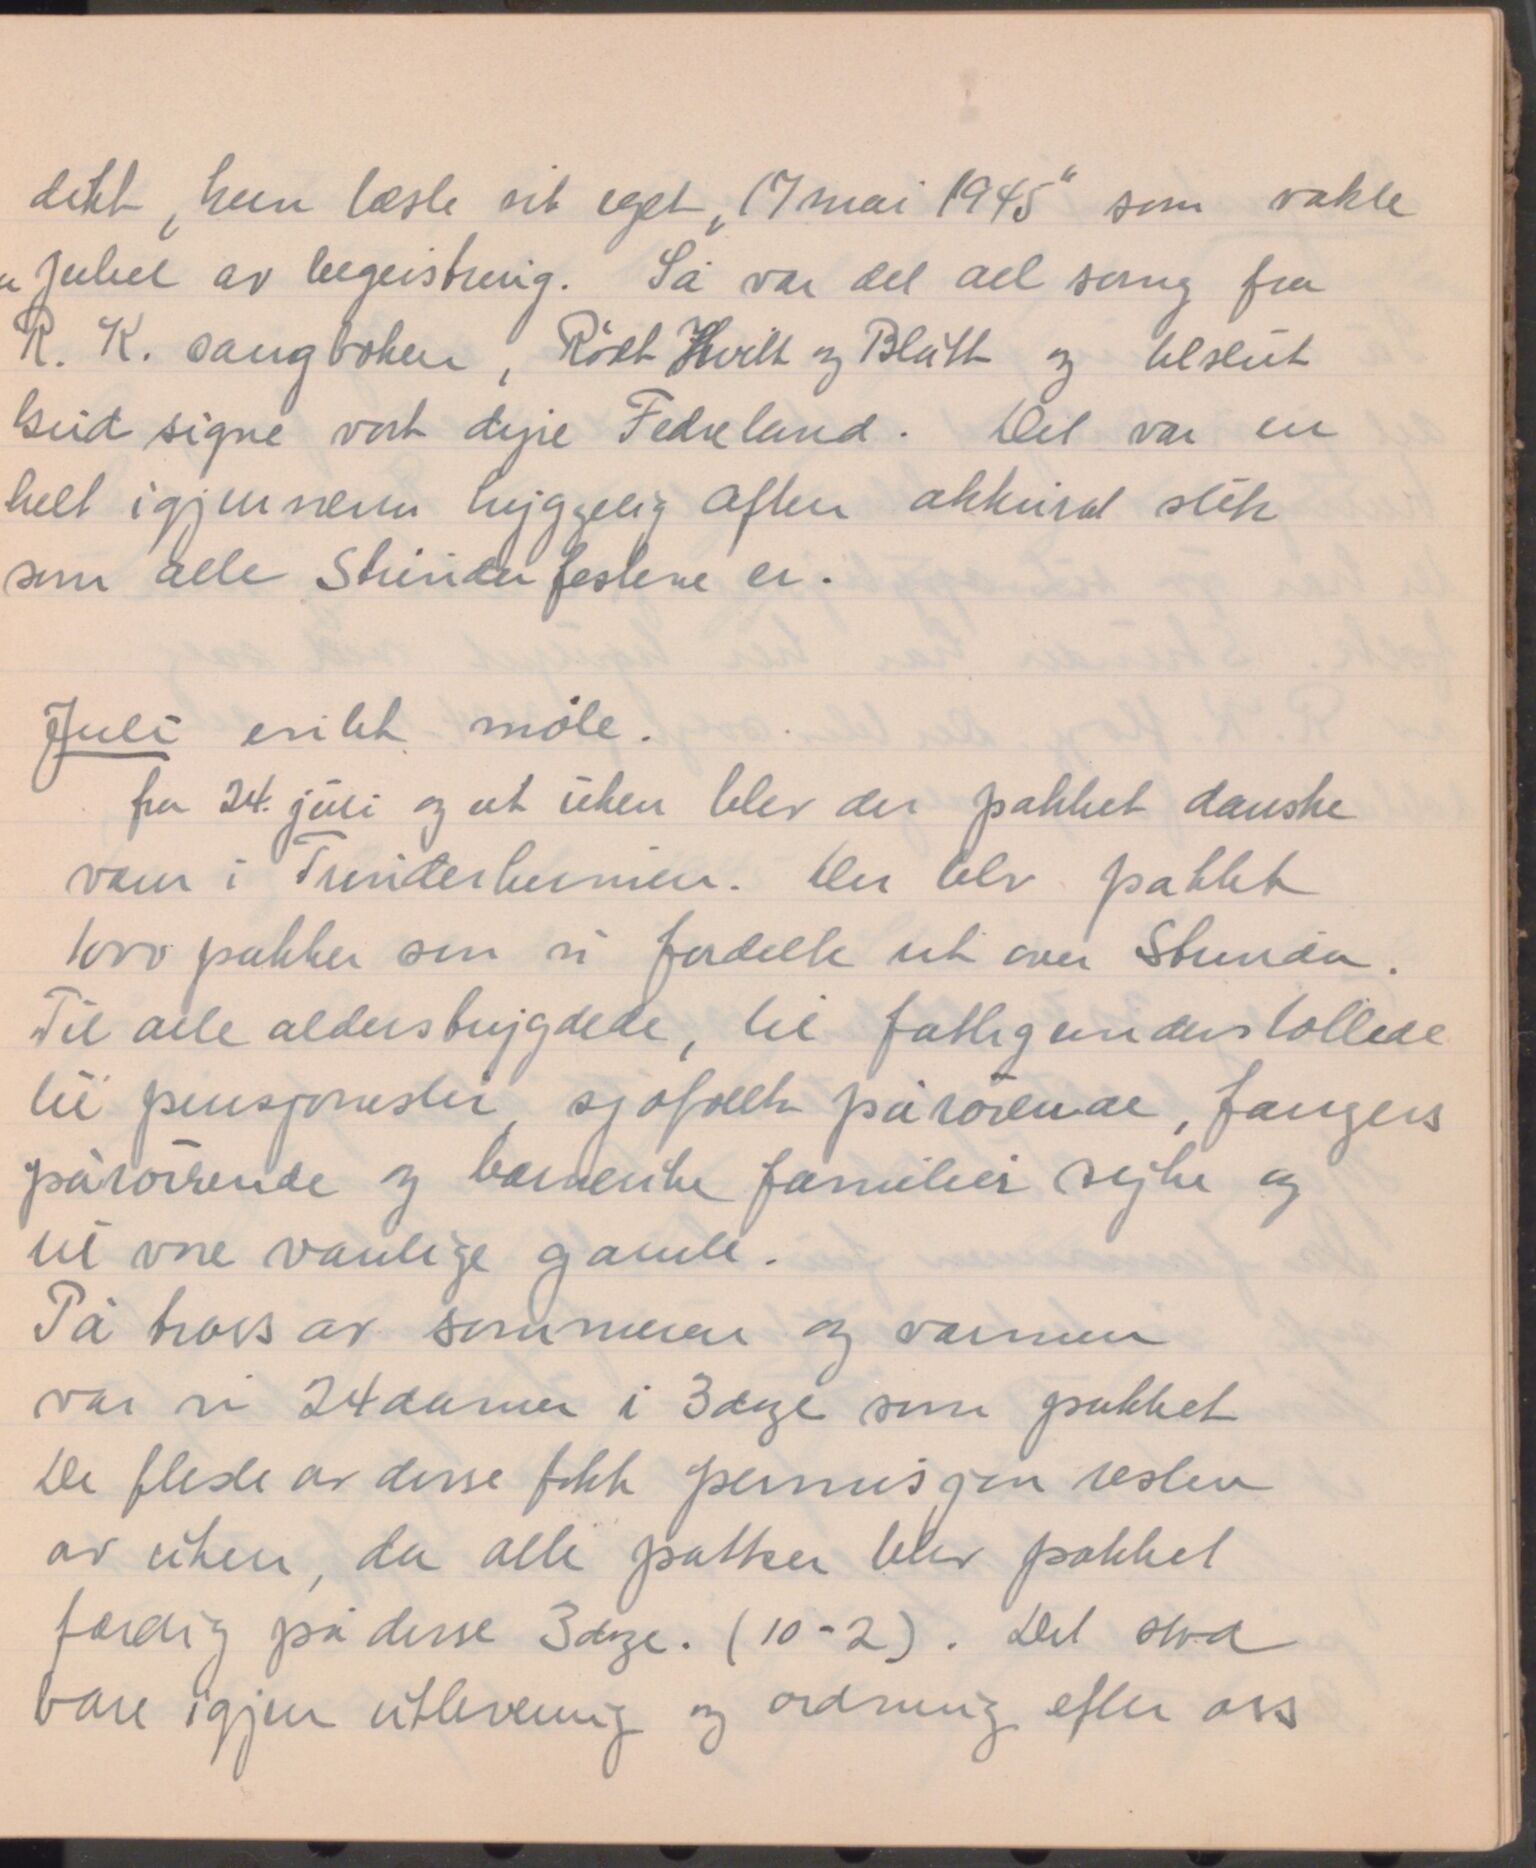 dikt, hun læste sit eget „17 mai 1945" som vakte
jubel av begeistring. Så var det al sang fra
R. K. sangboken, Rödt Hvitt og Blått og tilslut
Gud signe vort dyre Fedreland. Det var en
helt igjennem hyggelig aften akkurat slik
som alle Strindafestene er.
Juli enkelt møte.
fra 24. juli og ut uken blev der pakket danske
varer i Trønderheimen. Der blev pakket
1000 pakker som vi fordelte ut over Strinda.
Til alle alderstrygdede, til fattigunderstöttede
til pensjonister, sjøfolks pårørende, fangers
pårørende og barnerike familier syke og
til vore vanlige gamle.
På tross av sommeren og varmen
var vi 24 damer i 3 dage som pakket
De fleste av disse fikk permisjon resten
av uken, da alle pakker blev pakket
færdig på disse 3 dage. (10-2). Det stod
bare igjen utlevering og ordning efter oss